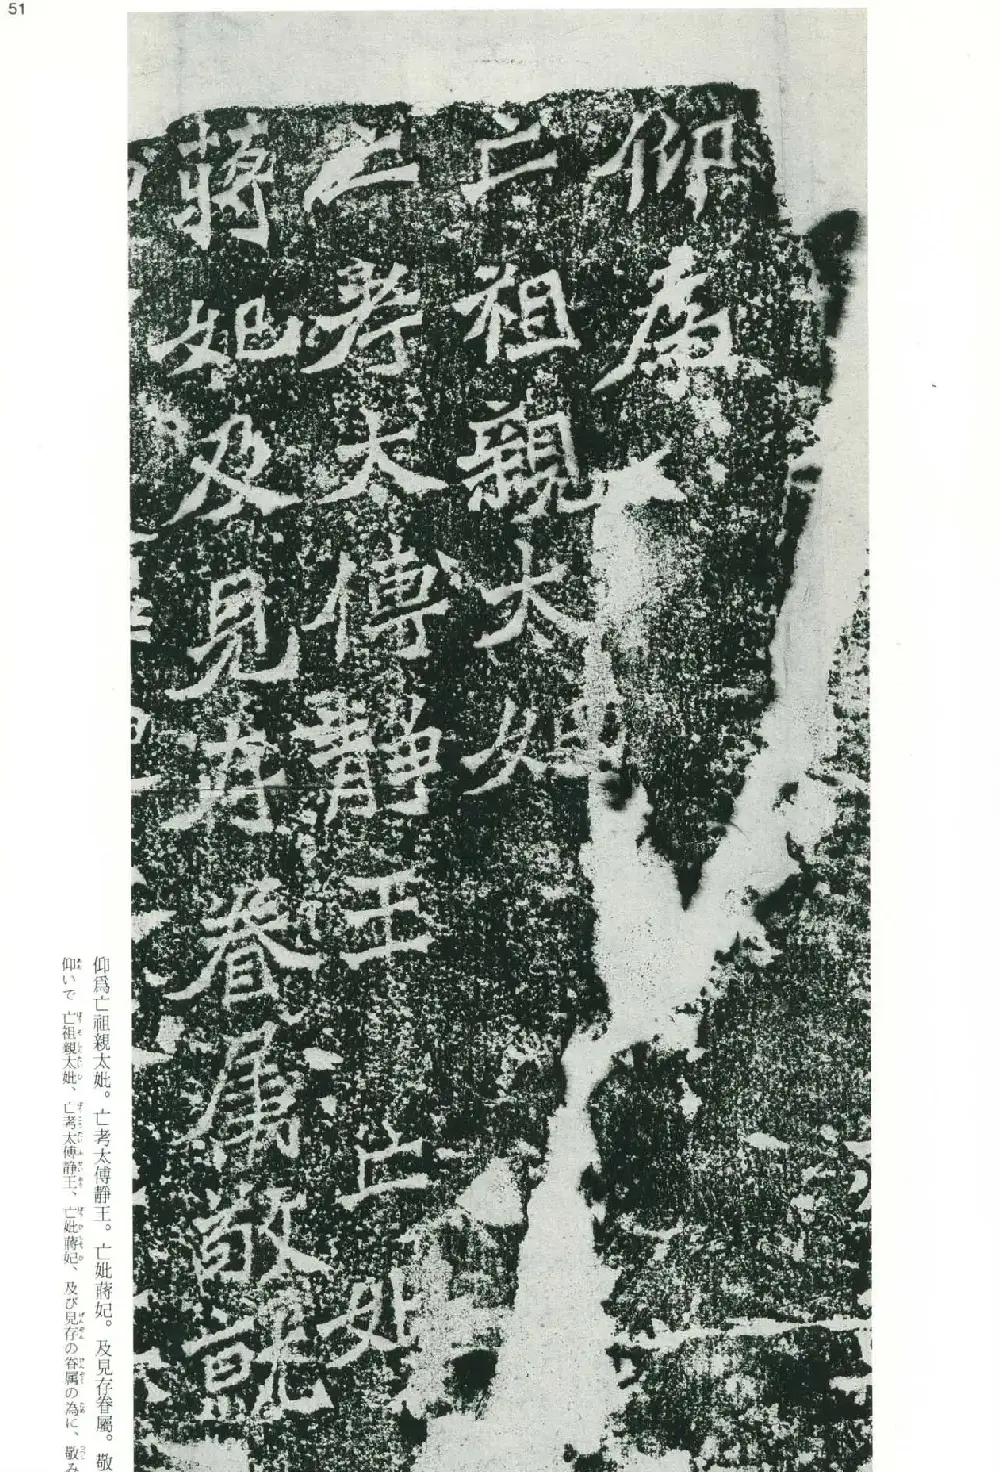 51
仰為
亡祖親太妃
亡考太傅靜王亡妣
蔣妃及見存眷屬敬就
仰爲亡祖親太妣。亡考太傅靜王。亡妣蔣妃。及見存眷屬。敬
仰いで亡祖親太妣、亡考太傅静王、亡妣蔣妃、及び見存の眷属の為に、敬み